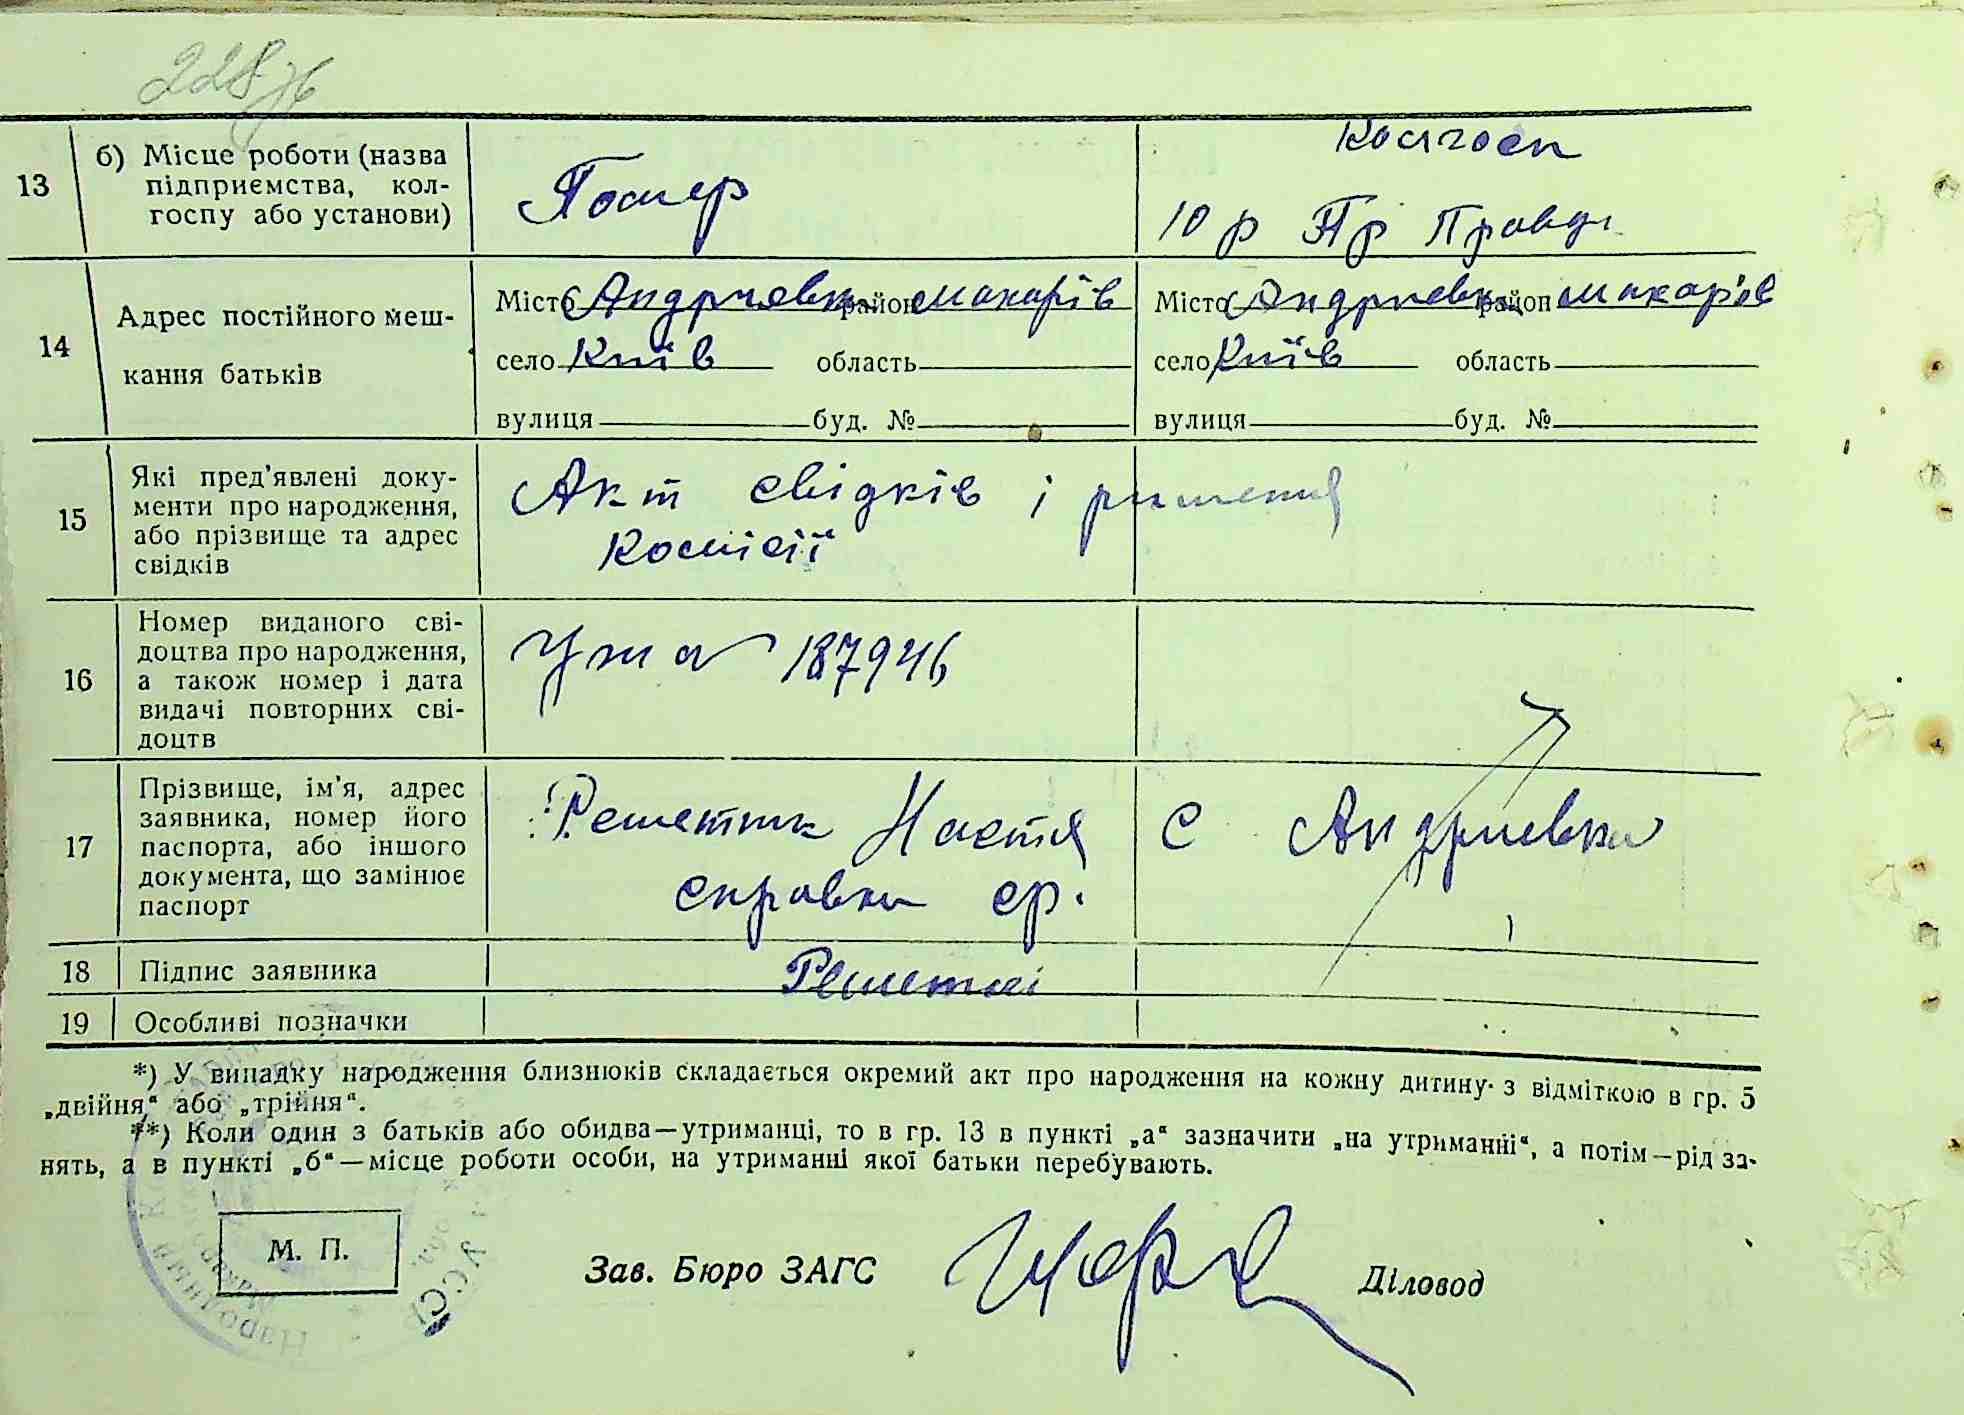 228
13
б) Місце роботи (назва
підприємства, кол-
госпу або установи)
Помер
Колгосп
10 р Пр Правди
14
Адрес постійного меш-
кання батьків
Місто Андриевка район макарів
село Київ область
вулиця буд. №
Місто Андриевка район макарів
село Київ область
вулиця буд. №
15
Які пред'явлені доку-
менти про народження,
або прізвище та адрес
свідків
Акт свідків і ришення
Комісії
16
Номер виданого сві-
доцтва про народження,
а також номер і дата
видачі повторних сві-
доцтв
187946
17
Прізвище, ім'я, адрес
заявника, номер його
паспорта, або іншого
документа, що замінює
паспорт
Решетник Настя
справка ср.
С Андриевка
18
Підпис заявника
19
Особливі позначки
*) У випадку народження близнюків складається окремий акт про народження на кожну дитину з відміткою в гр. 5
„двійня“ або „трійня“.
**) Коли один з батьків або обидва—утриманці, то в гр. 13 в пункті „а“ зазначити „на утриманні“, а потім—рід за-
нять, а в пункті „б“—місце роботи особи, на утриманні якої батьки перебувають.
М. П.
Зав. Бюро ЗАГС
Діловод
УССР